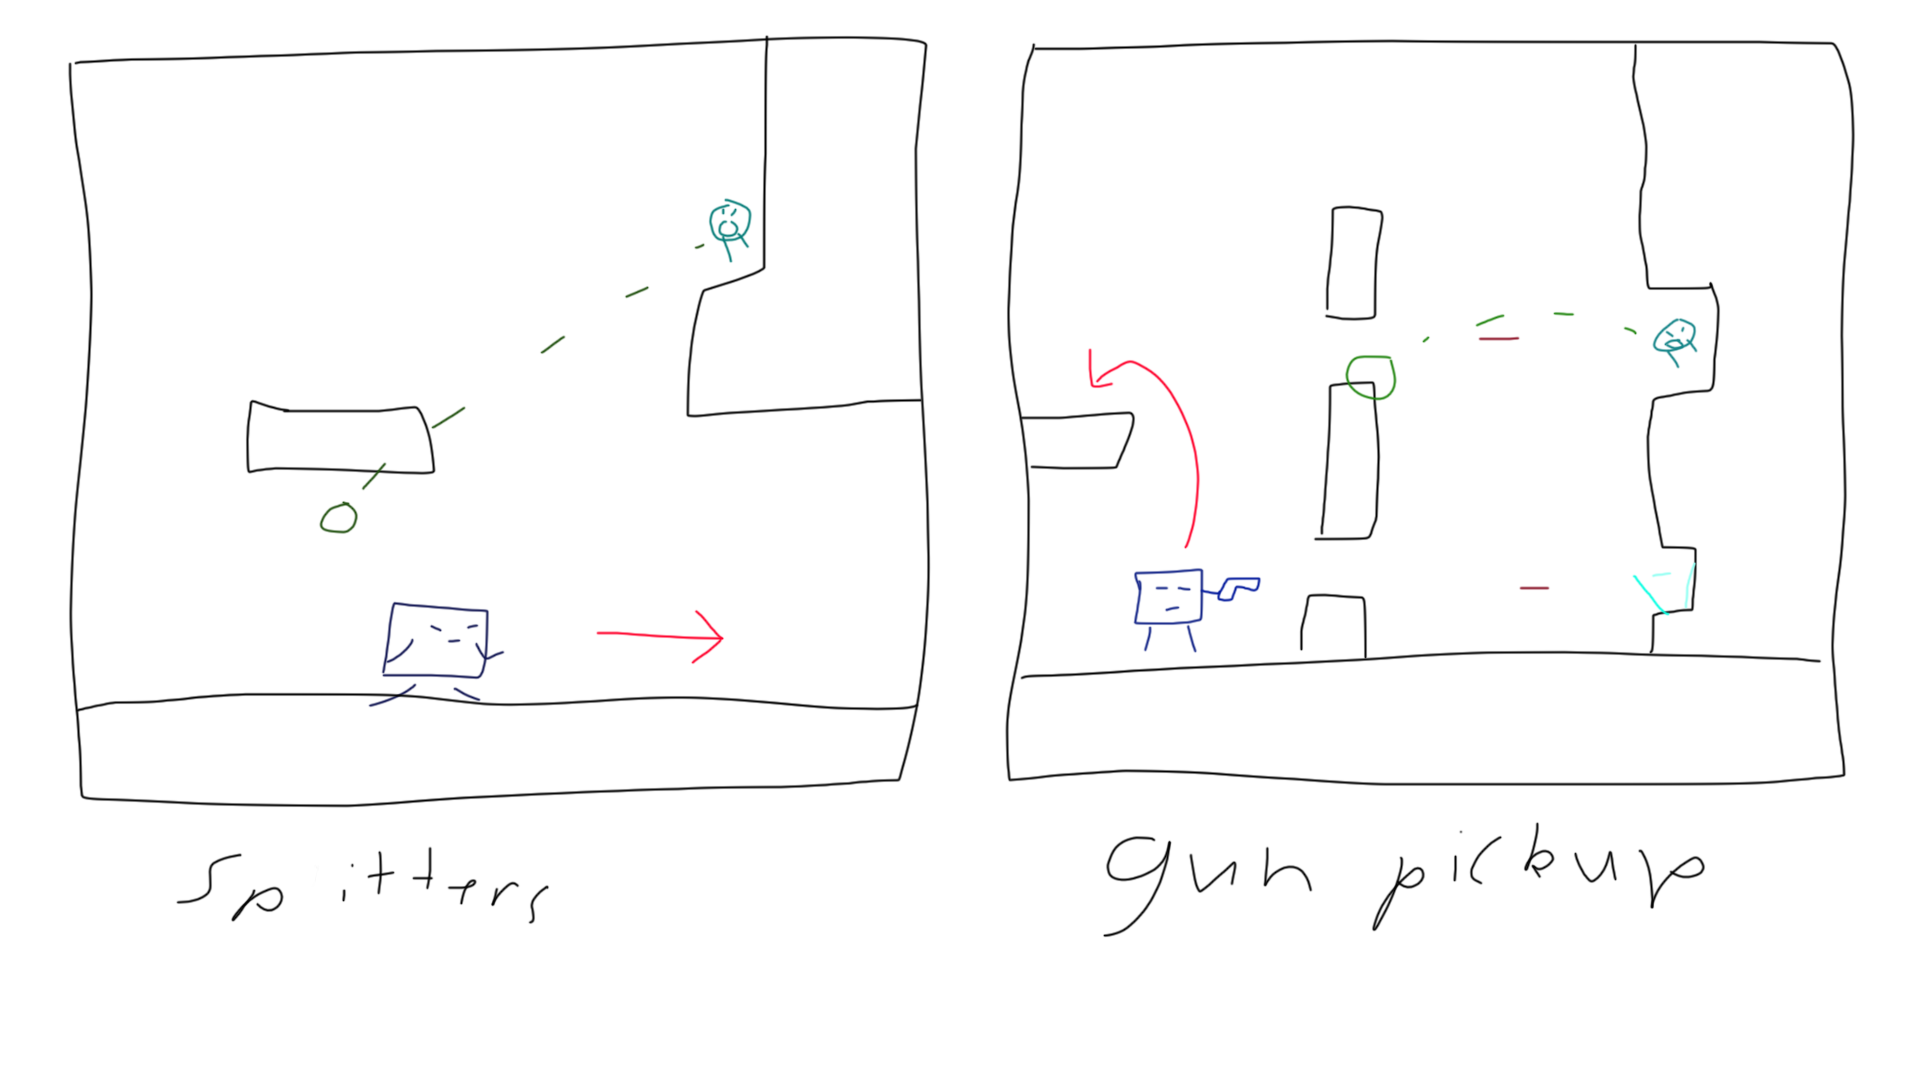 spitters
gun pickup